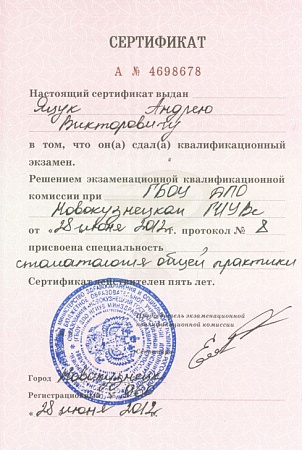 СЕРТИФИКАТ
А № 4698678
Настоящий сертификат выдан
Яцук Андрею
Викторовичу
в том, что он(а) сдал(а) квалификационный
экзамен.
Решением экзаменационной квалификационной
комиссии при ГБОУ ДПО
Новокузнецкий ГИУВс
от «28 июня 2012г. протокол № 8
присвоена специальность
стоматология общей практики
Сертификат действителен пять лет.
Председатель экзаменационной
квалификационной комиссии
Город Новокузнецк
Регистрационный №
«28 июня 2012г.